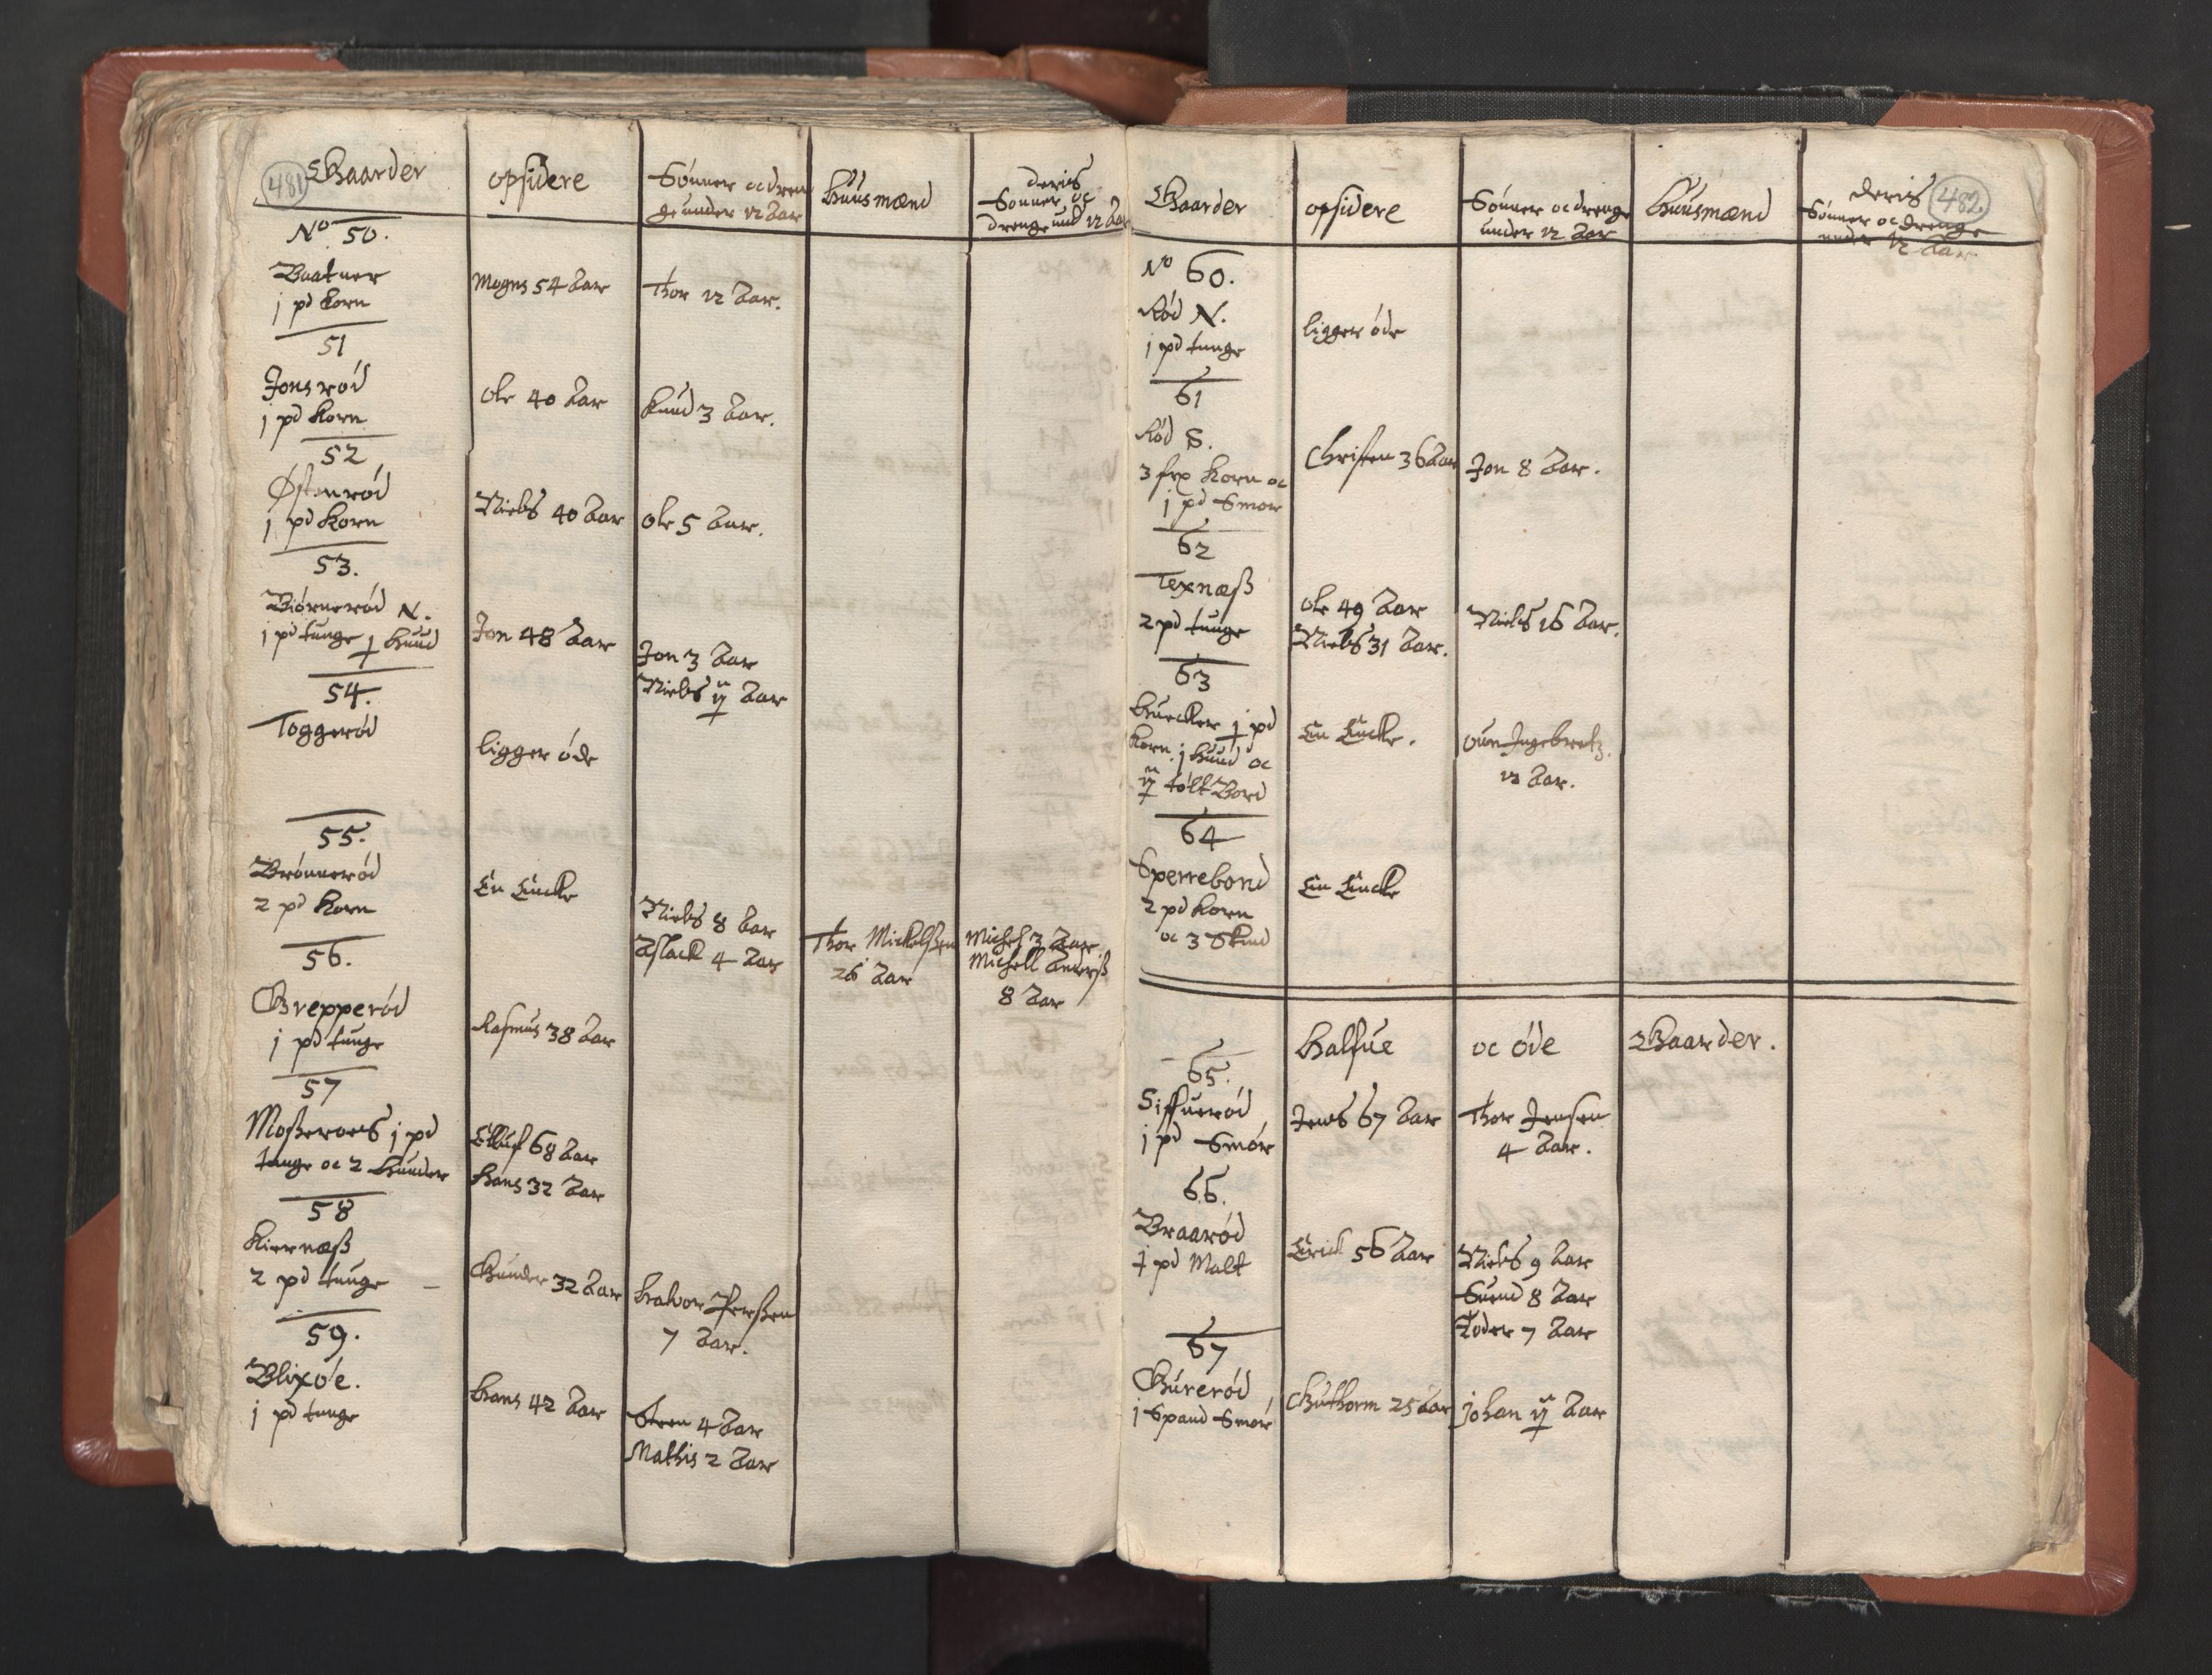 481
Gaarder
opsidere
Sønner oc dren
ge under 12 Aar
Huusmænd
deris
Sønner oc
drenge und 12 Aar
No 50.
Baatner
j pd Korn
Mogns 54 Aar
Thor 12 Aar.
51
Jonsrød
j pd Korn
Ole 40 Aar
Knud 3 Aar.
52
Østenrød
j pd Korn
Niels 40 Aar
Ole 5 Aar.
53.
Biørnerød N.
j pd tunge j huud
Jon 48 Aar
Jon 3 Aar
Niels ij Aar
54.
Toggerød
ligger øde
55.
Brønnerød
2 pd Korn
En Encke
Niels 8 Aar
Aslack 4 Aar
Thor Mickelßen
26 Aar
Michel 3 Aar
Michell Anderß
8 Aar
56.
Grepperød
j pd tunge
Rasmus 38 Aar
57
Moßeroes j pd
tunge oc 2 huuder
Elluf 68 Aar
Hans 32 Aar
58
Kiernæß
2 pd tunge
Gunder 32 Aar
Halvor Perßen
7 Aar.
59.
Blixøe.
j pd tunge
Hans 42 Aar
Steen 4 Aar
Mathis 2 Aar
482.
Gaarder
opsidere
Sønner oc drenge
under 12 Aar
Huusmænd
deris
Sønner oc drenge
under 12 Aar
No 60.
Rød N.
j pd tunge
ligger øde
61
Rød S.
3 frp Korn oc
j pd Smør
Christen 36 Aar
Jon 8 Aar.
62
Texnæß
2 pd tunge
Ole 49 Aar
Niels 31 Aar.
Niels 16 Aar.
63
Huecker j pd
Korn j huud oc
ij tølt Bord
En Encke.
Oun Ingebretz.
12 Aar.
64
Sperrebond
2 pd Korn
oc 3 Skind
En Encke
Halfue oc øde Gaarder.
65.
Siffuerød
j pd Smør
Jens 67 Aar
Thor Jensen
4 Aar.
66.
Braarød
j pd Malt
Erick 56 Aar
Niels 9 Aar
Suend 8 Aar
Toder 7 Aar
67
Gurerød
j Spand Smør
Guthorm 25 Aar
Johan ij Aar